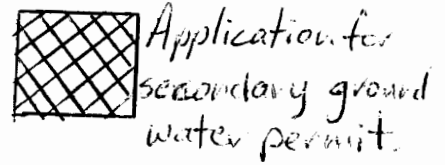 Application for
secondary ground
water permit.